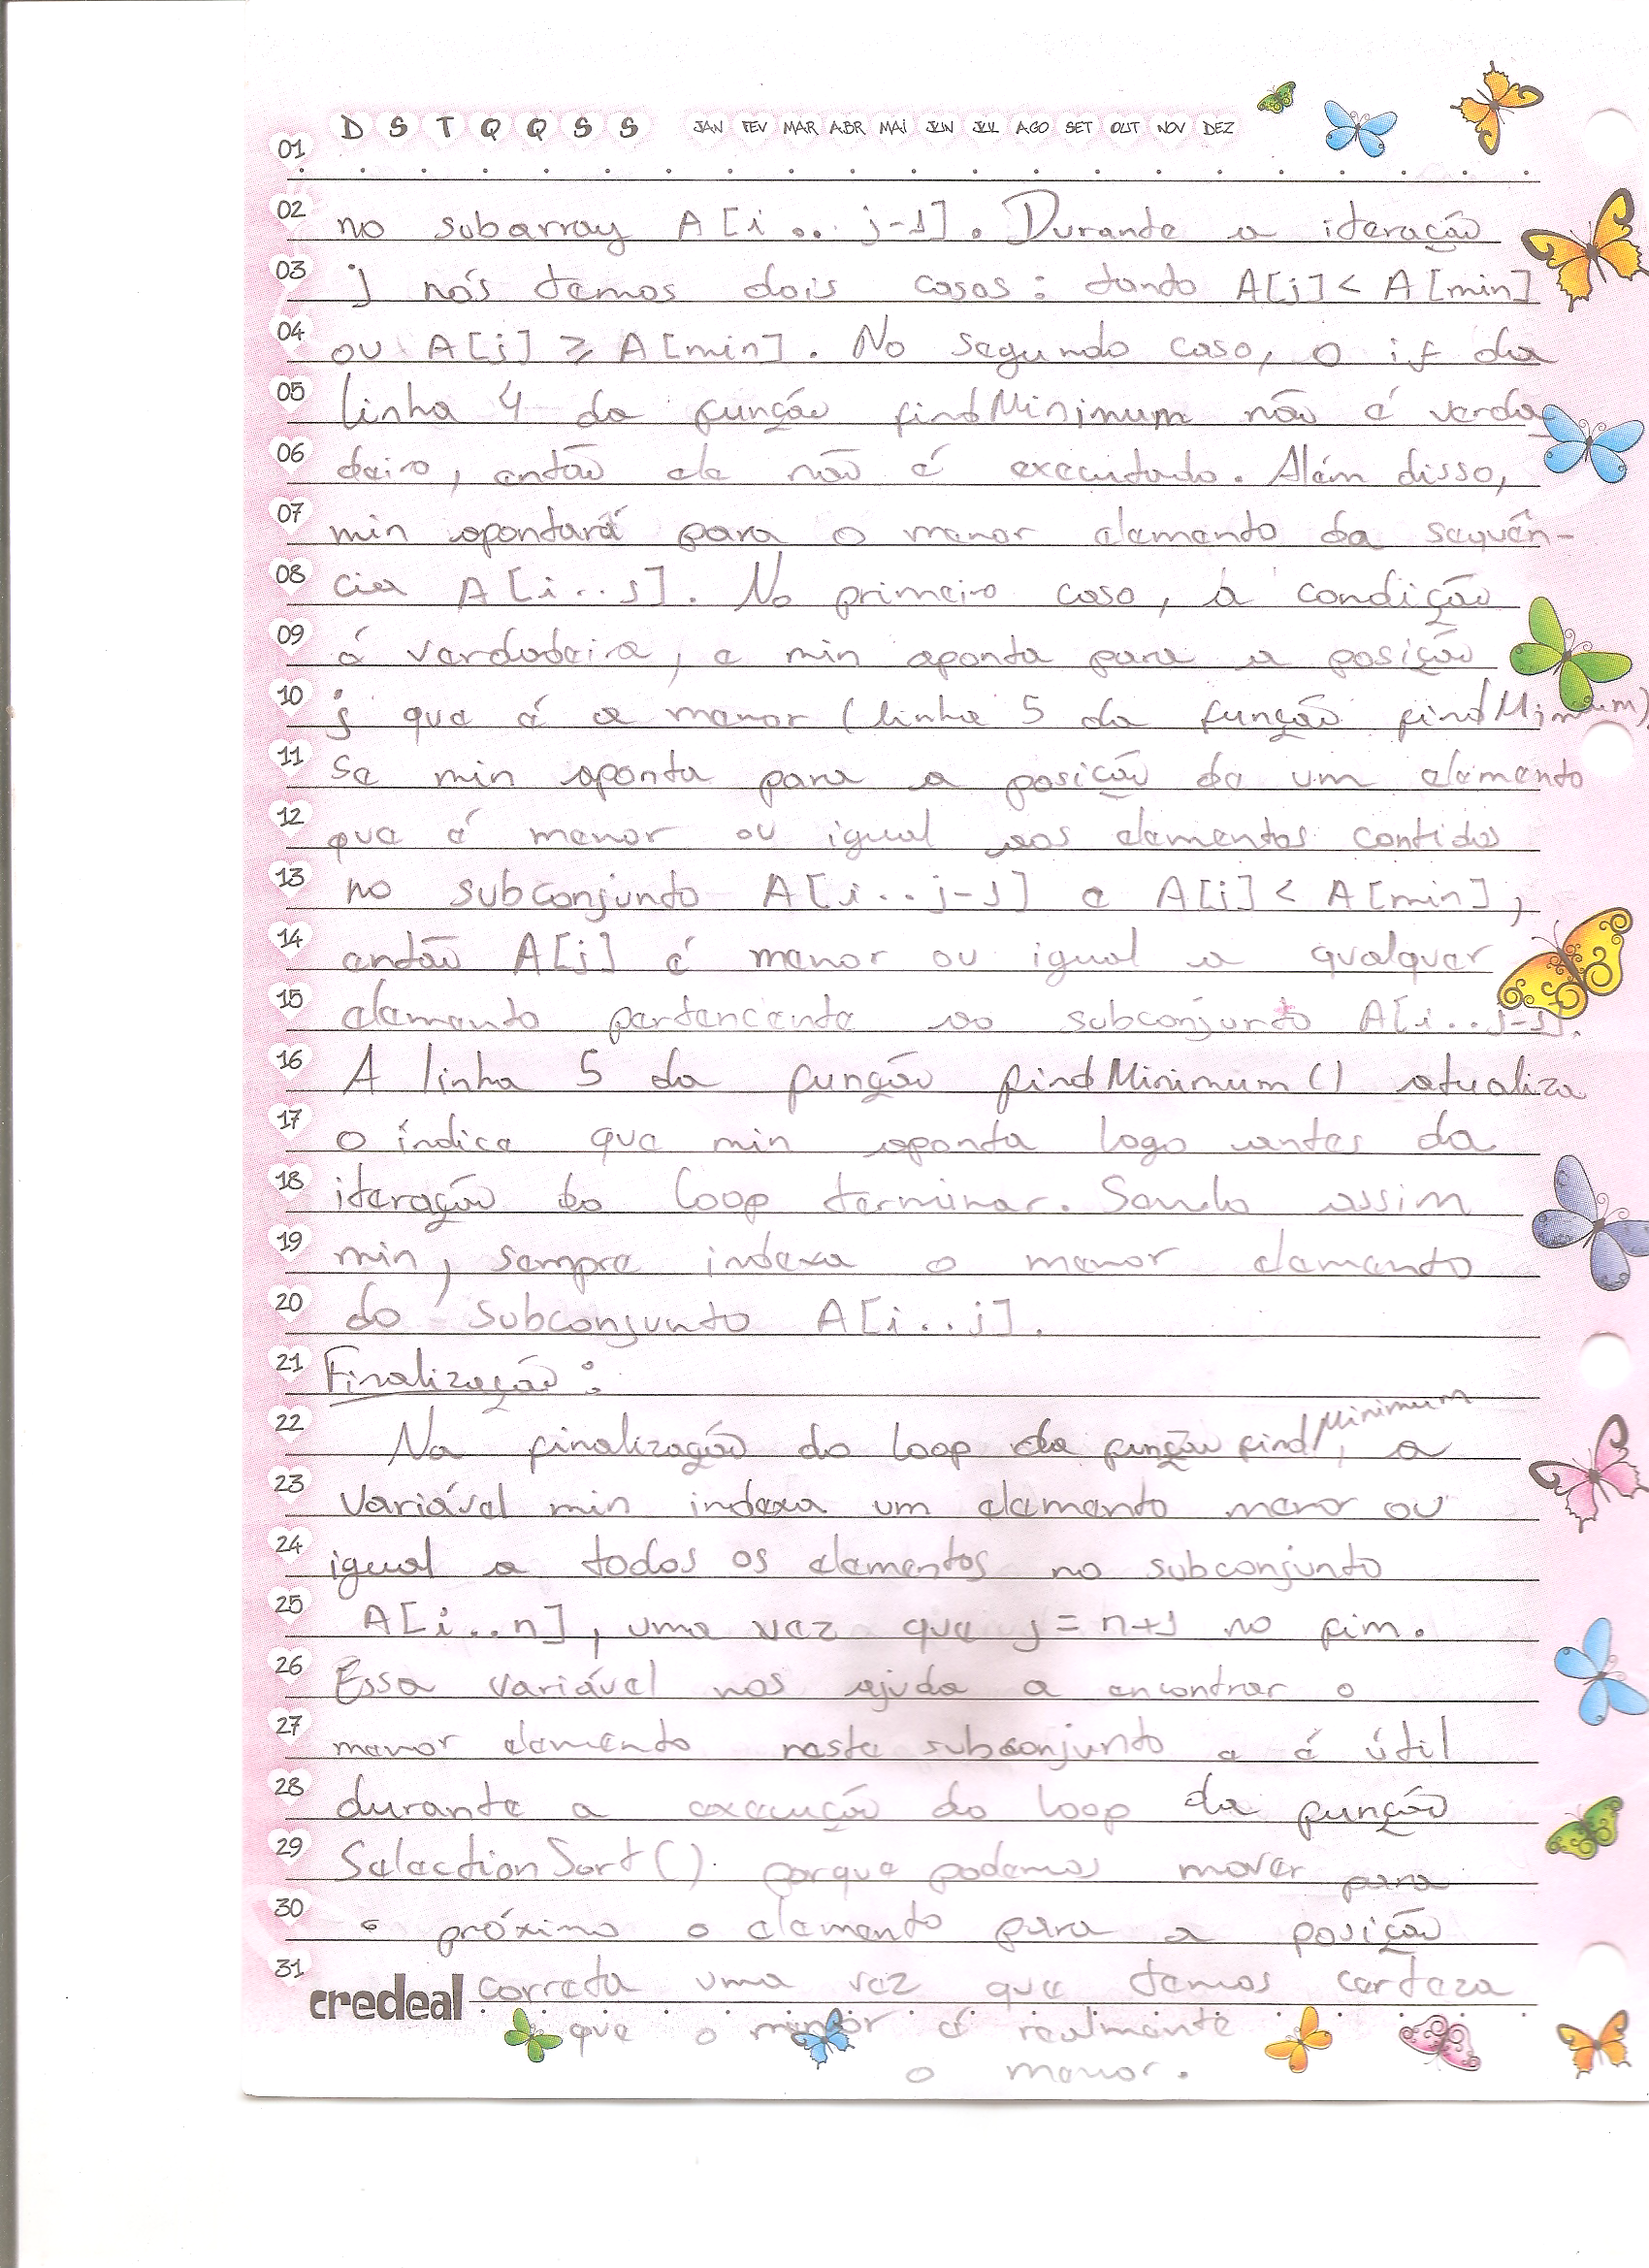 D S T Q Q S S JAN FEV MAR ABR MAI JUN JUL AGO SET OUT NOV DEZ
01
02 no subarray A[i .. j-1]. Durante a iteração
03 j nós temos dois casos: tanto A[j] < A[min]
04 ou A[j] ≥ A[min]. No segundo caso, o if da
05 linha 4 da função findMinimum não é verda
06 deiro, então ele não é executado. Além disso,
07 min apontará para o menor elemento da sequên-
08 cia A[i..j]. No primeiro caso, a condição
09 é verdadeira, e min aponta para a posição
10 j que é a menor (linha 5 da função findMinimum)
11 Se min aponta para a posição de um elemento
12 que é menor ou igual aos elementos contidos
13 no subconjunto A[i..j-1] e A[j] < A[min],
14 então A[j] é menor ou igual a qualquer
15 elemento pertencente ao subconjunto A[i..j-1].
16 A linha 5 da função findMinimum() atualiza
17 o índice que min aponta logo antes da
18 iteração do loop terminar. Sendo assim
19 min, sempre indexa o menor elemento
20 do subconjunto A[i..j].
21 Finalização:
22 Na finalização do loop da função findMinimum, a
23 variável min indexa um elemento menor ou
24 igual a todos os elementos no subconjunto
25 A[i..n], uma vez que j = n+1 no fim.
26 Essa variável nos ajuda a encontrar o
27 menor elemento neste subconjunto e é útil
28 durante a execução do loop da função
29 SelectionSort() porque podemos mover para
30 o próximo o elemento para a posição
31 credeal correta uma vez que temos certeza
que o menor é realmente
o menor.